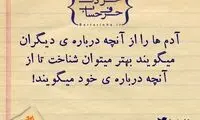 حرف حساب
آدم ها را از آنچه درباره ی دیگران
میگویند بهتر میتوان شناخت تا از
آنچه درباره ی خود میگویند!